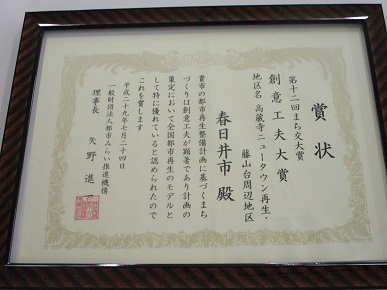 賞状
第十二回まち交大賞
創意工夫大賞
地区名 高蔵寺ニュータウン再生・
藤山台周辺地区
春日井市 殿
貴市の都市再生整備計画に基づくまち
づくりは創意工夫が顕著であり計画の
策定において全国都市再生のモデルと
して特に優れていると認められたので
これを賞します
平成二十九年七月二十四日
一般財団法人都市みらい推進機構
理事長 矢野 進一